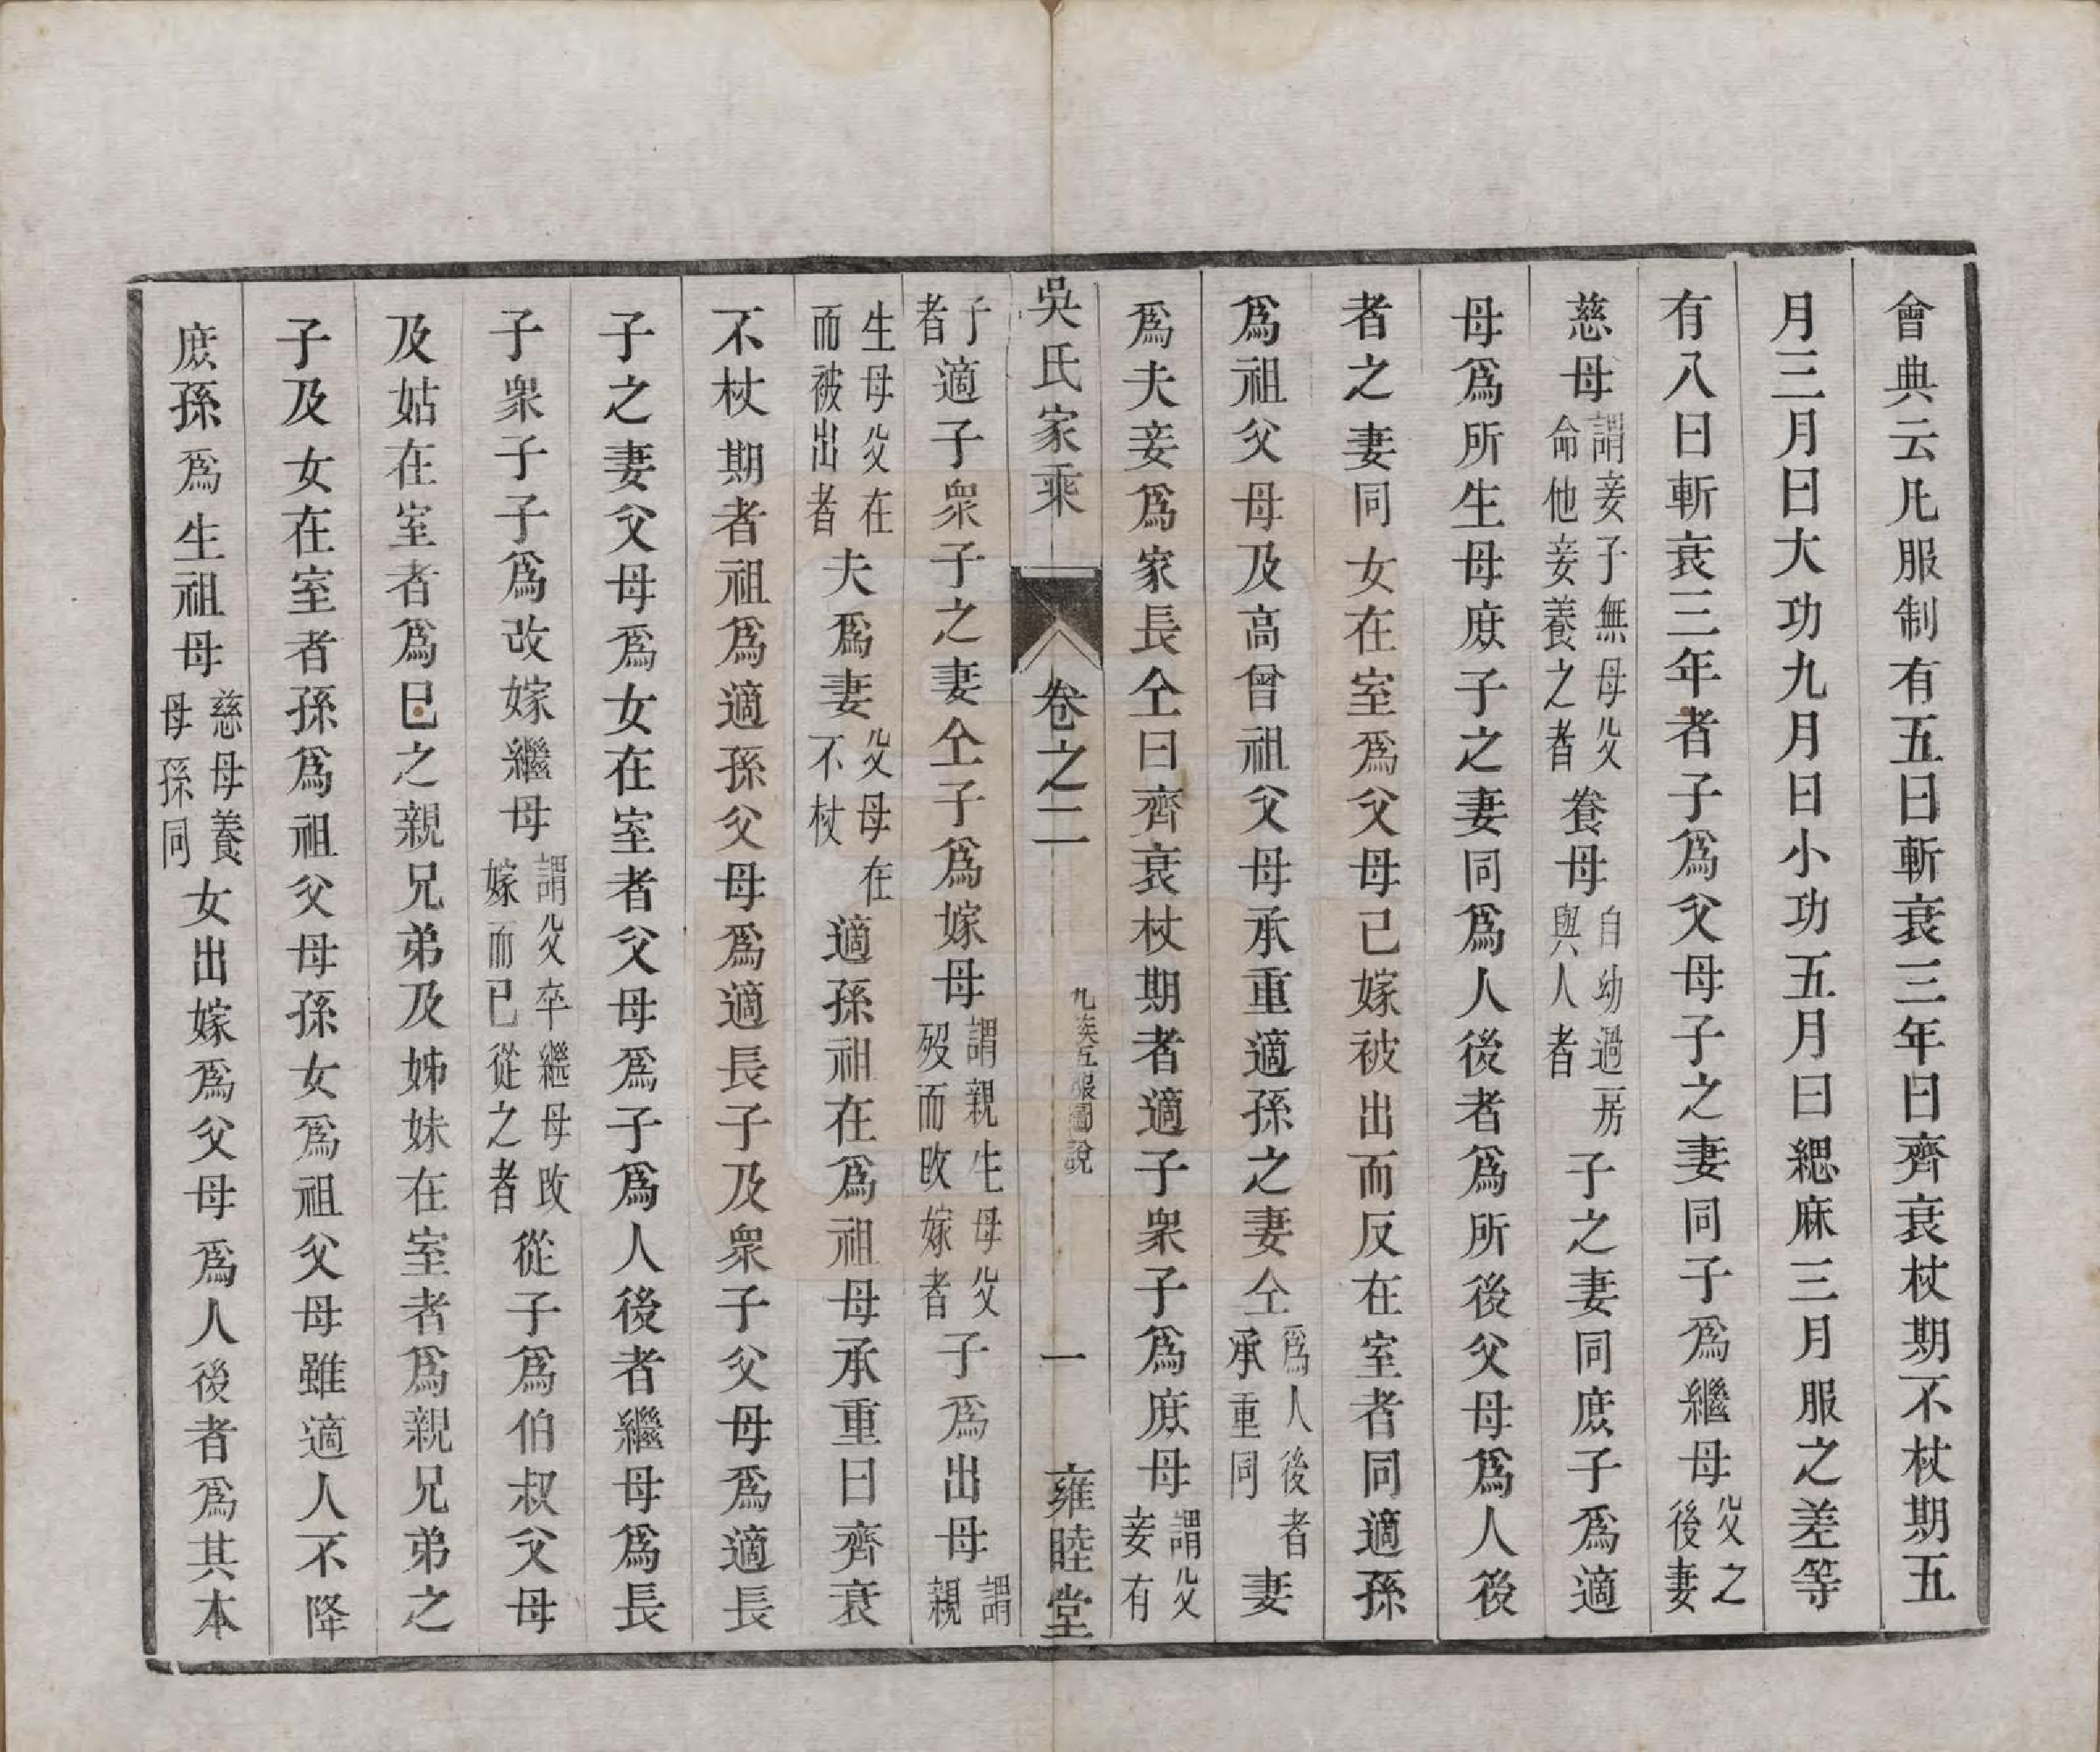 會典云凡服制有五曰斬衰三年曰齊衰杖期不杖期五
月三月曰大功九月曰小功五月曰緦麻三月服之差等
有八曰斬衰三年者子為父母子之妻同子為繼母父之後妻
慈母謂妾子無母父命他妾養之者養母自幼過房與人者子之妻同庶子為適
母為所生母庶子之妻同為人後者為所後父母為人後
者之妻同女在室為父母已嫁被出而反在室者同適孫
為祖父母及高曾祖父母承重適孫之妻仝為人後者承重同妻
為夫妾為家長仝曰齊衰杖期者適子衆子為庶母謂父妾有
子者適子衆子之妻仝子為嫁母謂親生母父歿而改嫁者子為出母謂親
生母父在而被出者夫為妻父母在不杖適孫祖在為祖母承重曰齊衰
不杖期者祖為適孫父母為適長子及衆子父母為適長
子之妻父母為女在室者父母為子為人後者繼母為長
子衆子子為改嫁繼母謂父卒繼母改嫁而已從之者從子為伯叔父母
及姑在室者為己之親兄弟及姊妹在室者為親兄弟之
子及女在室者孫為祖父母孫女為祖父母雖適人不降
庶孫為生祖母慈母養母孫同女出嫁為父母為人後者為其本
吳氏家乘
卷之二
九族五服圖說
一
雍睦堂